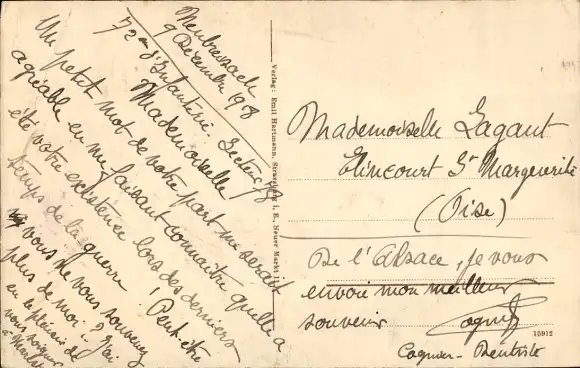 Neubreisach
9 Décembre 1918
72em d'Infanterie. Secteur
Mademoiselle
Un petit mot de votre part me serait
agréable en me faisant connaître quelle a
été votre existence lors des derniers
temps de la guerre ! Peut-être
ne vous souvenez
plus de moi... ? j'ai
eu le plaisir de
vous soigner
à
Verlag: Emil Hartmann, Strassburg i. E., Neuer Markt
Mademoiselle Lagant
Elincourt Ste Marguerite
(Oise)
De l'Alsace, je vous
envoie mon meilleur
souvenir
15912
Cagnier - Dentiste